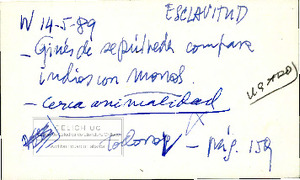 ESCLAVITUD
N 14-5-89
- Ginés de Sepúlveda compara
indios con monos.
- cerca animalidad
USADO
FELICH UC
todorov - pág. 159